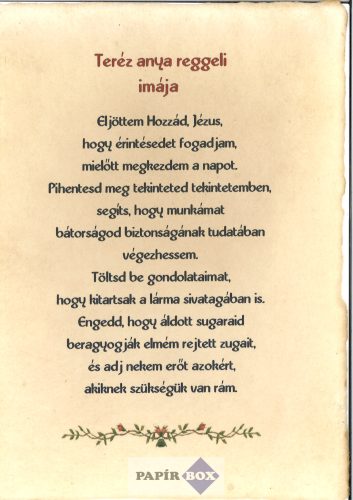 Teréz anya reggeli
imája
Eljöttem Hozzád, Jézus,
hogy érintésedet fogadjam,
mielőtt megkezdem a napot.
Pihentesd meg tekinteted tekintetemben,
segíts, hogy munkámat
bátorságod biztonságának tudatában
végezhessem.
Töltsd be gondolataimat,
hogy kitartsak a lárma sivatagában is.
Engedd, hogy áldott sugaraid
beragyogják elmém rejtett zugait,
és adj nekem erőt azokért,
akiknek szükségük van rám.
PAPÍR BOX